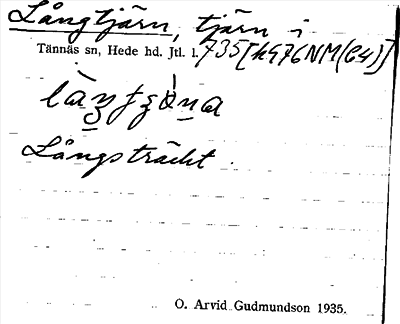 Långtjärn, tjärn i
Tännäs sn, Hede hd. Jtl. l. 735
Långsträckt.
O. Arvid Gudmundson 1935.